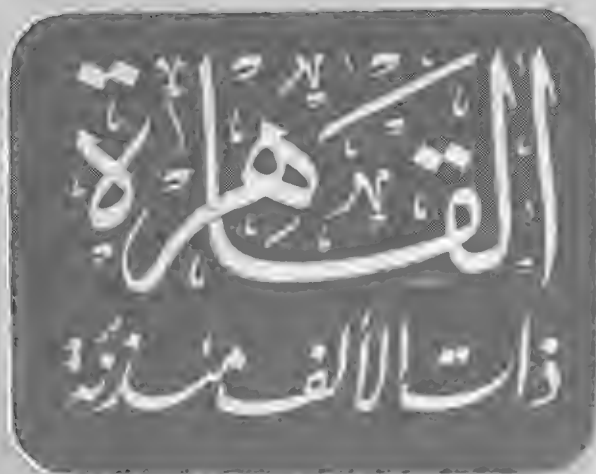 القاهرة
ذات الألف مئذنة